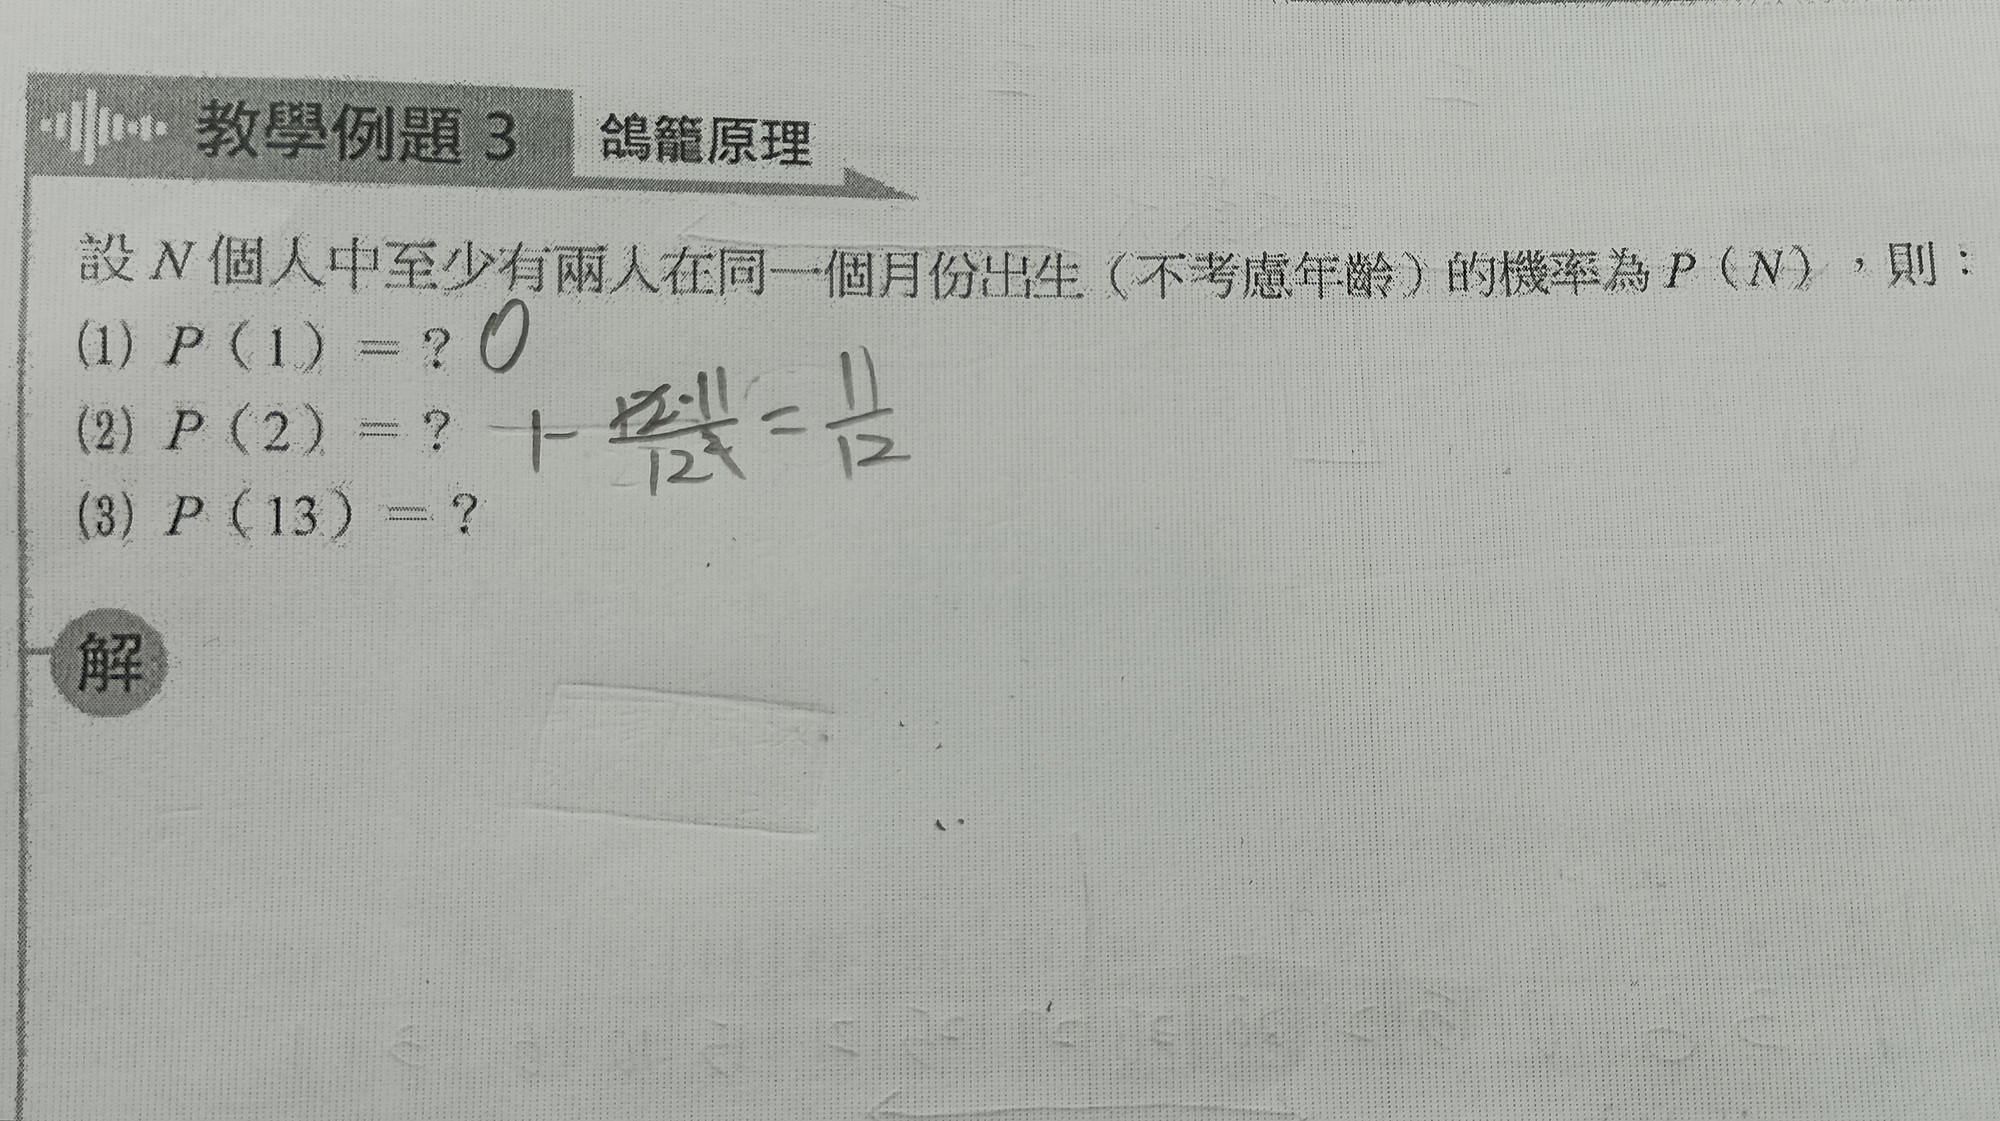 教學例題 3 鴿籠原理
設 N 個人中至少有兩人在同一個月份出生（不考慮年齡）的機率為 P（N），則：
(1) P（1）＝？ 0
(2) P（2）＝？ 1- 12·11/12² = 11/12
(3) P（13）＝？
解